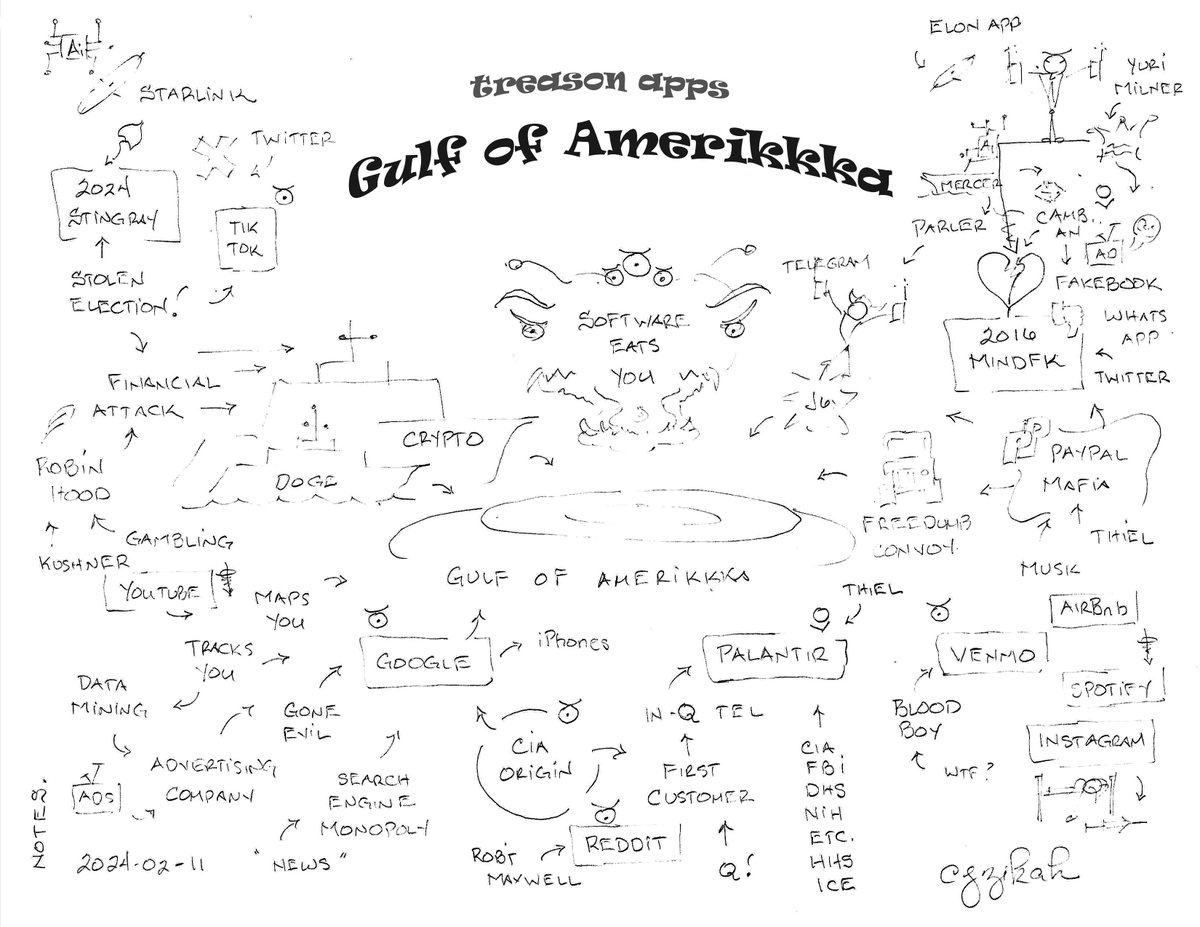 treason apps
Gulf of Amerikkka
Ai
STARLINK
TWITTER
2024
STINGRAY
TIK
TOK
STOLEN
ELECTION!
FINANCIAL
ATTACK
CRYPTO
DOGE
ROBIN
HOOD
GAMBLING
KUSHNER
SOFTWARE
EATS
YOU
TELEGRAM
J6
ELON APP
YURI
MILNER
Ai
MERCER
PARLER
CAMB.
AN
AD
FAKEBOOK
2016
MINDFK
WHATS
APP
TWITTER
PAYPAL
MAFIA
THIEL
MUSK
FREEDUMB
CONVOY.
GULF OF AMERIKKKA
YOUTUBE
MAPS
YOU
TRACKS
YOU
DATA
MINING
GONE
EVIL
ADVERTISING
COMPANY
ADS
SEARCH
ENGINE
MONOPOLY
"NEWS"
GOOGLE
iPhones
CIA
ORIGIN
IN-Q TEL
FIRST
CUSTOMER
Q!
REDDIT
ROBT
MAXWELL
THIEL
PALANTIR
CIA.
FBI
DHS
NIH
ETC.
HHS
ICE
VENMO
BLOOD
BOY
WTF?
AIRBnb
SPOTIFY
INSTAGRAM
NOTES.
2024-02-11
cgzikah